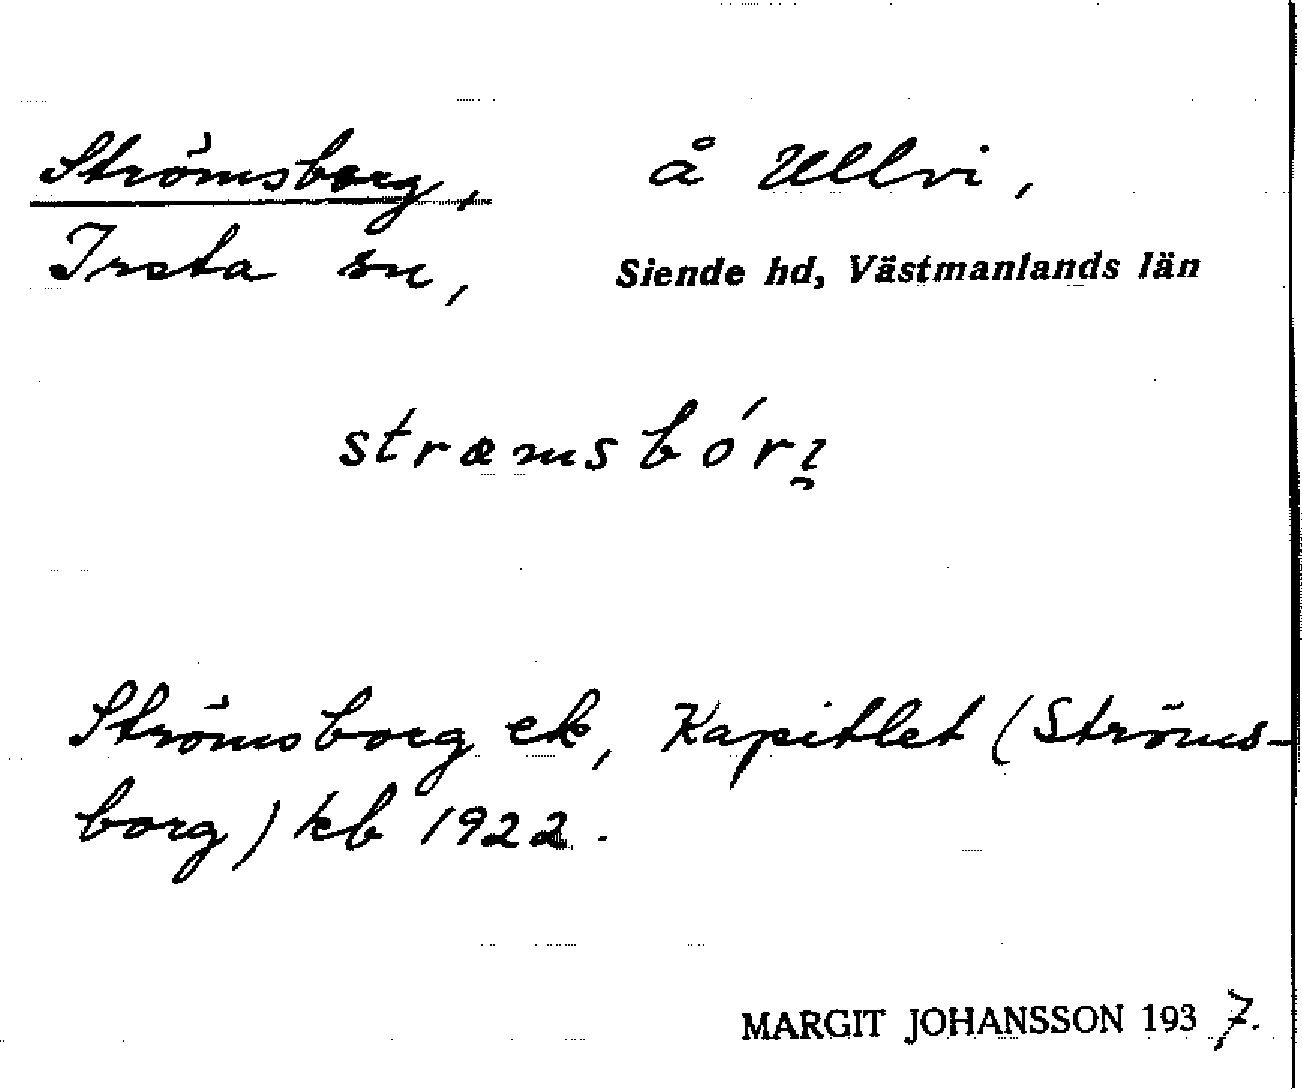 Strömsborg, å Ullvi,
Irsta sn, Siende hd, Västmanlands län
strœmsbórı̯
Strömsborg ek, Kapitlet (Ströms-
borg) kb 1922.
MARGIT JOHANSSON 1937.